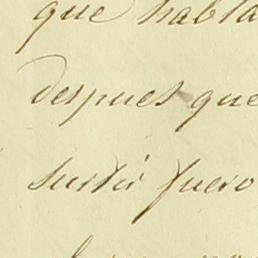 que habla
despues que
surtir fuero